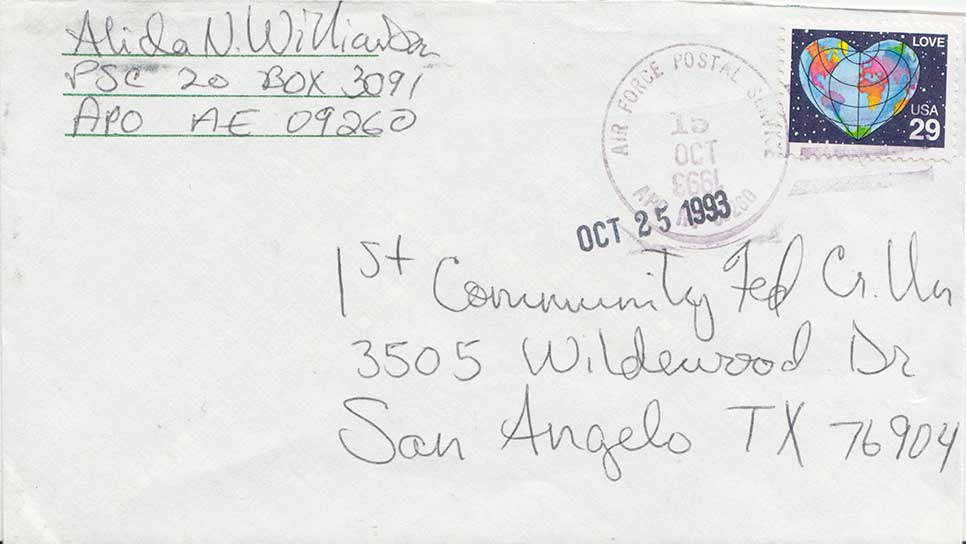 Alida N. Williamson
PSC 20 BOX 3091
APO AE 09260
LOVE
USA
29
AIR FORCE POSTAL SERVICE
15
OCT
1993
APO AE 09260
OCT 25 1993
1st Community Fed Cr. Un
3505 Wildewood Dr
San Angelo TX 76904